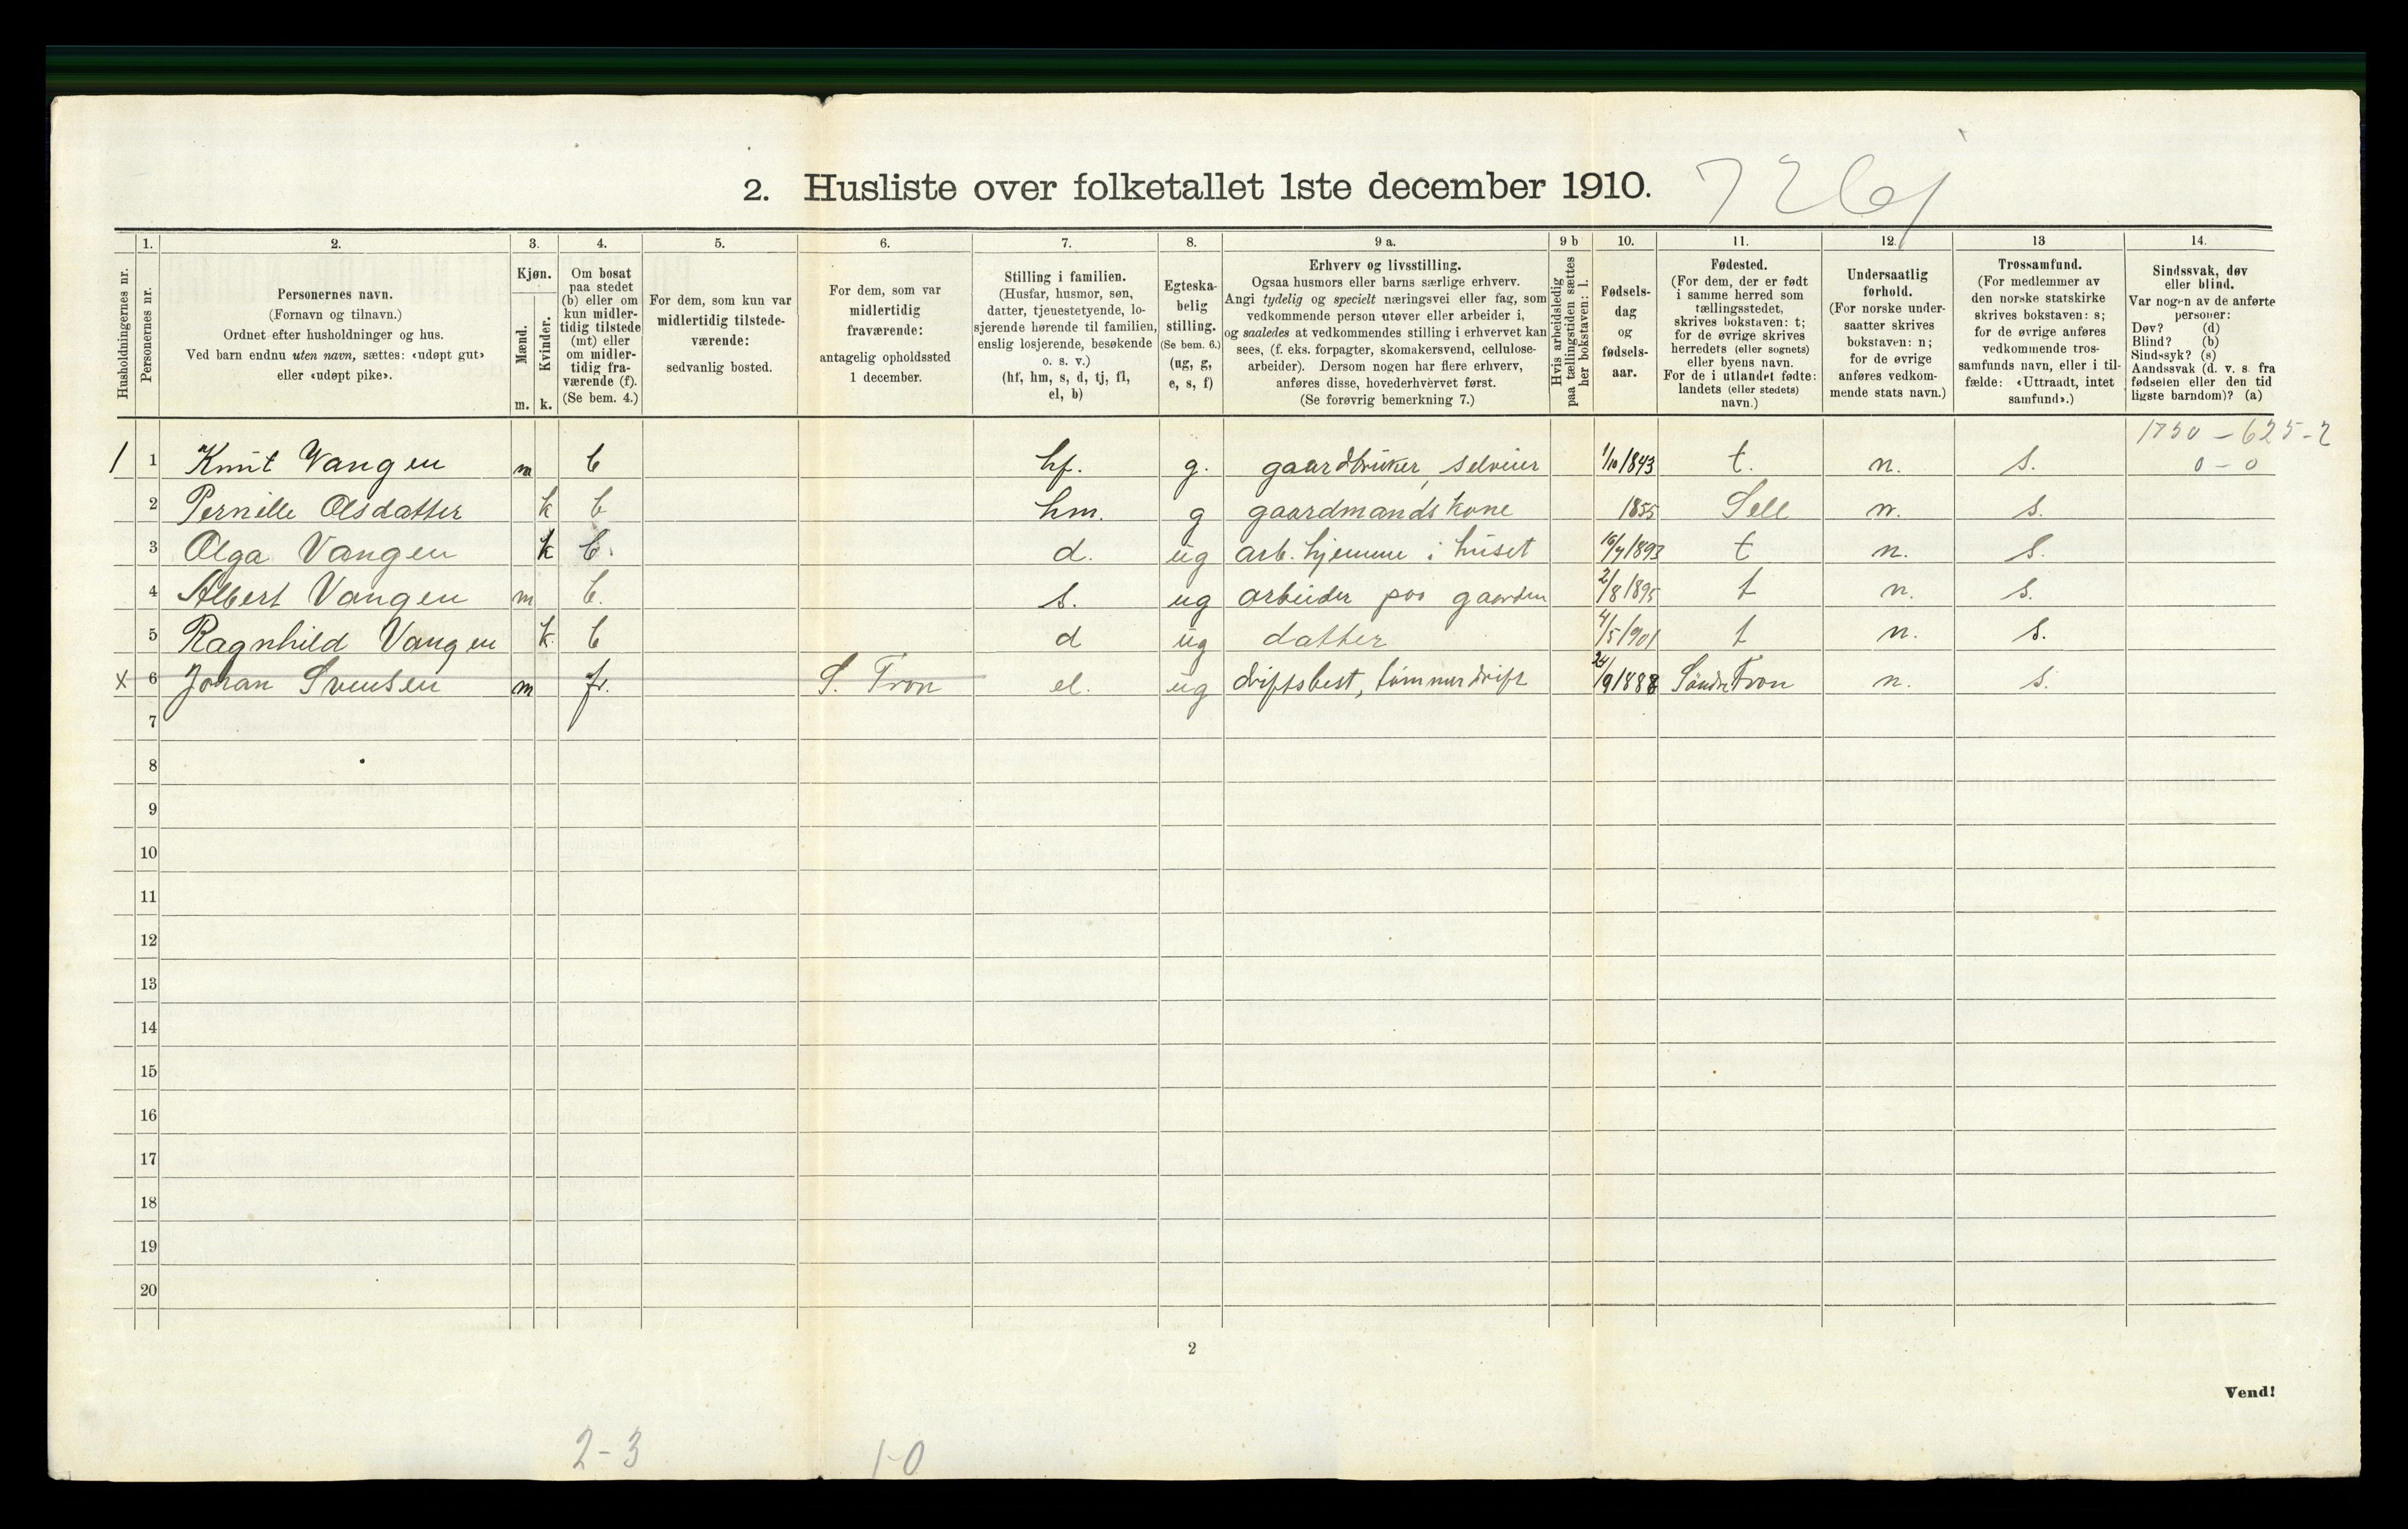 2. Husliste over folketallet 1ste december 1910.
Husholdningernes nr.
1. Personernes nr.
2. Personernes navn.
(Fornavn og tilnavn.)
Ordnet efter husholdninger og hus.
Ved barn endnu uten navn, sættes: «udøpt gut»
eller «udøpt pike».
3. Kjøn.
Mænd. Kvinder.
m. k.
4. Om bosat
paa stedet
(b) eller om
kun midler-
tidig tilstede
(mt) eller
om midler-
tidig fra-
værende (f).
(Se bem. 4.)
5. For dem, som kun var
midlertidig tilstede-
værende:
sedvanlig bosted.
6. For dem, som var
midlertidig
fraværende:
antagelig opholdssted
1 december.
7. Stilling i familien.
(Husfar, husmor, søn,
datter, tjenestetyende, lo-
sjerende hørende til familien,
enslig losjerende, besøkende
o. s. v.)
(hf, hm, s, d, tj, fl,
el, b)
8. Egteska-
belig
stilling.
(Se bem. 6.)
(ug, g,
e, s, f)
9 a. Erhverv og livsstilling.
Ogsaa husmors eller barns særlige erhverv.
Angi tydelig og specielt næringsvei eller fag, som
vedkommende person utøver eller arbeider i,
og saaledes at vedkommendes stilling i erhvervet kan
sees, (f. eks. forpagter, skomakersvend, cellulose-
arbeider). Dersom nogen har flere erhverv,
anføres disse, hovederhvervet først.
(Se forøvrig bemerkning 7.)
9 b Hvis arbeidsledig
paa tællingstiden sættes
her bokstaven: l.
10. Fødsels-
dag
og
fødsels-
aar.
11. Fødested.
(For dem, der er født
i samme herred som
tællingsstedet,
skrives bokstaven: t;
for de øvrige skrives
herredets (eller sognets)
eller byens navn.
For de i utlandet fødte:
landets (eller stedets)
navn.)
12. Undersaatlig
forhold.
(For norske under-
saatter skrives
bokstaven: n;
for de øvrige
anføres vedkom-
mende stats navn.)
13 Trossamfund.
(For medlemmer av
den norske statskirke
skrives bokstaven: s;
for de øvrige anføres
vedkommende tros-
samfunds navn, eller i til-
fælde: «Uttraadt, intet
samfund».)
14. Sindssvak, døv
eller blind.
Var nogen av de anførte
personer:
Døv? (d)
Blind? (b)
Sindssyk? (s)
Aandssvak (d. v. s. fra
fødselen eller den tid
ligste barndom)? (a)
1750 - 625-2
1 1 Knut Vangen m b hf. g. gaardbruker, selveier 1/10 1843 t. n. s. 0 - 0
2 Pernille Olsdatter k b hm. g gaardmandskone 1855 Sell n. s.
3 Olga Vangen k b. d. ug arb. hjemme i huset 1893 t n. s.
4 Albert Vangen m b. s. ug arbeider paa gaarden 2/8 1895 t n. s.
5 Ragnhild Vangen k b d ug datter 4/5 1901 t n. s.
x 6 Johan Svensen m fr. S. Fron el. ug driftsbest, tømmerdrift 24/9 1888 Søndre Fron n. s.
7
8
9
10
11
12
13
14
15
16
17
18
19
20
2
Vend!
2-3 1-0